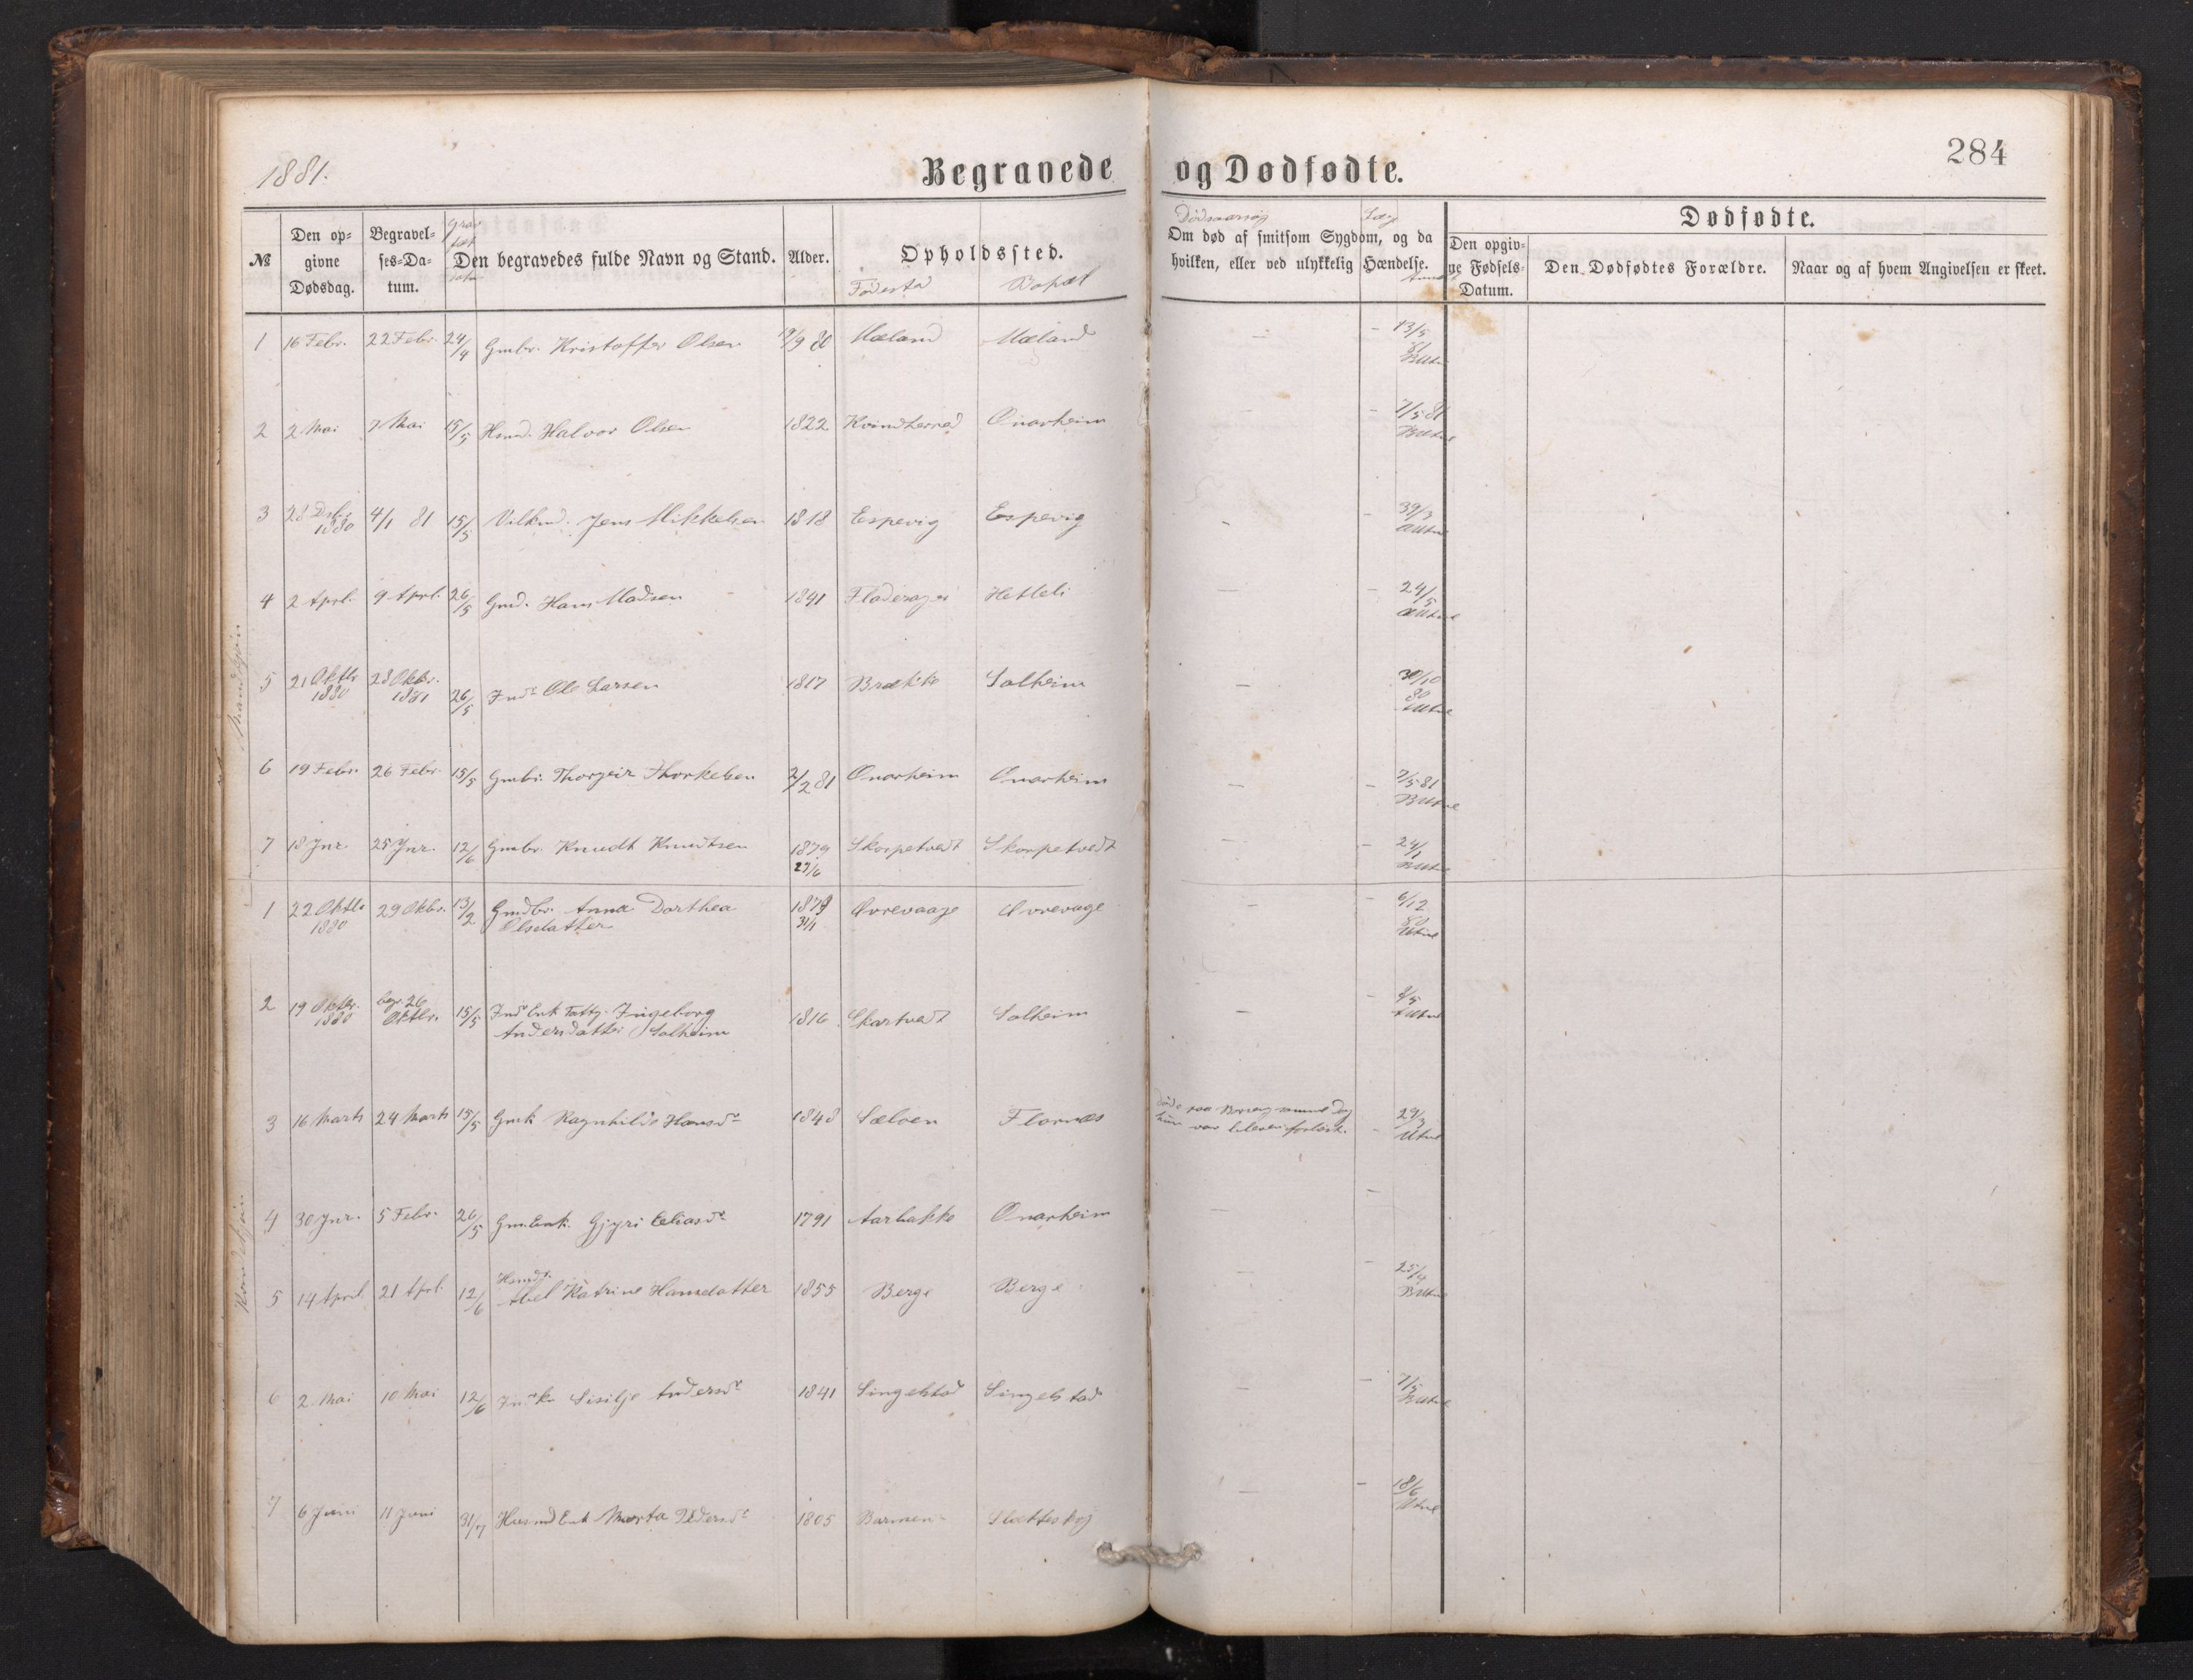 1881.
Begravede og Dødfødte.
284
№
Den opgivne Dødsdag.
Begravelses-Datum.
Den begravedes fulde Navn og Stand.
Alder.
Opholdssted.
Fødested
Bopæl
Om død af smitsom Sygdom, og da
hvilken, eller ved ulykkelig Hændelse.
Dødfødte.
Den opgivne Fødsels-Datum.
Den Dødfødtes Forældre.
Naar og af hvem Angivelsen er skeet.
Mandkjøn
1 16 Febr. 22 Febr. 24/4 Gmbr. Kristoffer Olsen 19/9 80 Mæland Mæland – – 13/5 81
2 2 Mai 7 Mai 15/5 Hsmd. Halvor Olsen 1822 Kvindherred Onarheim – 7/5 81
3 28 Dsbr 1880 4/1 81 15/5 Jens Mikkelsen 1818 Espevig Espevig – –
4 2 Aprl. 9 Aprl. 26/5 Gmd. Hans Madsen 1841 Hetleli – – 24/5
5 21 Oktbr 1880 28 Oktbr. 1881 26/5 Inds Ole Larsen 1817 Brække Solheim – 30/10 80
6 19 Febr. 26 Febr. 15/5 Gmbr. Thorgeir Thorkelsen 2/2 81 Onarheim Onarheim – – 7/5 81
7 18 Jnr. 25 Jnr. 12/6 Gmbr. Knudt Knudtsen 1879 27/6 Skorpetvedt Skorpetvedt – – 24/1
Kvindekjøn
1 22 Oktbr 1880 29 Oktbr. 13/2 Gmdbr. Anna Dorthea
Olsdatter 1879 31/1 Øvrevaage Øvrevage – – 6/12 80
2 19 Oktbr. 1880 begr. 26 Oktbr. 15/5 Inds Enk Fattg. Ingeborg
Andersdatter Solheim 1816 Skartvedt Solheim – – 8/5
3 16 Marts 24 Marts 15/5 Gmk Ragnhilde Hansdr 1848 Sælven Flornæs
døde paa samme Dag
hun var bleven forløst. – 29/3
4 30 Jnr. 5 Febr. 26/5 Gm.Enk. Gjyri Eliasdr 1791 Aarbakke Onarheim – –
5 14 Aprl. 21 Aprl. 12/6 Abel Katrine Hansdatter 1855 Berge Berge – – 25/4
6 2 Mai 10 Mai 12/6 Sisilje Andersdr 1841 Singelstad Singelstad – – 7/5
7 6 Juni 11 Juni 31/7 Husmd Enk Marta Pedersdr 1805 Barmen – – 18/6